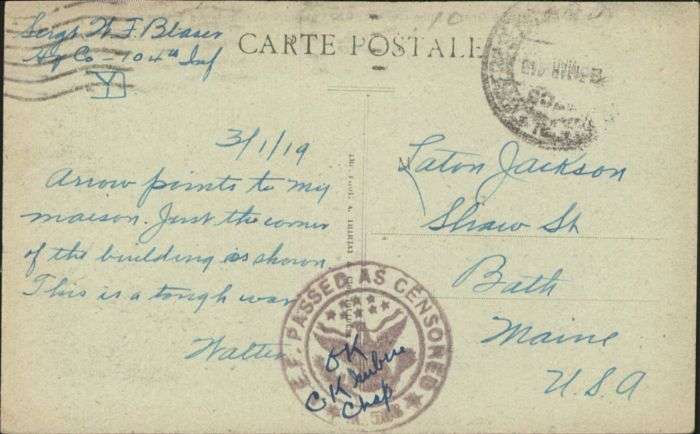 Sergt W. F. Blaser
Hq Co - 104th Inf
YD
CARTE POSTALE
3/1/19
Arrow points to my
maison. Just the corner
of the building is shown
This is a tough war
Walter
M
Laton Jackson
Shaw St
Bath
Maine
U.S.A
A.E.F. PASSED AS CENSORED
OK
C K
Chap